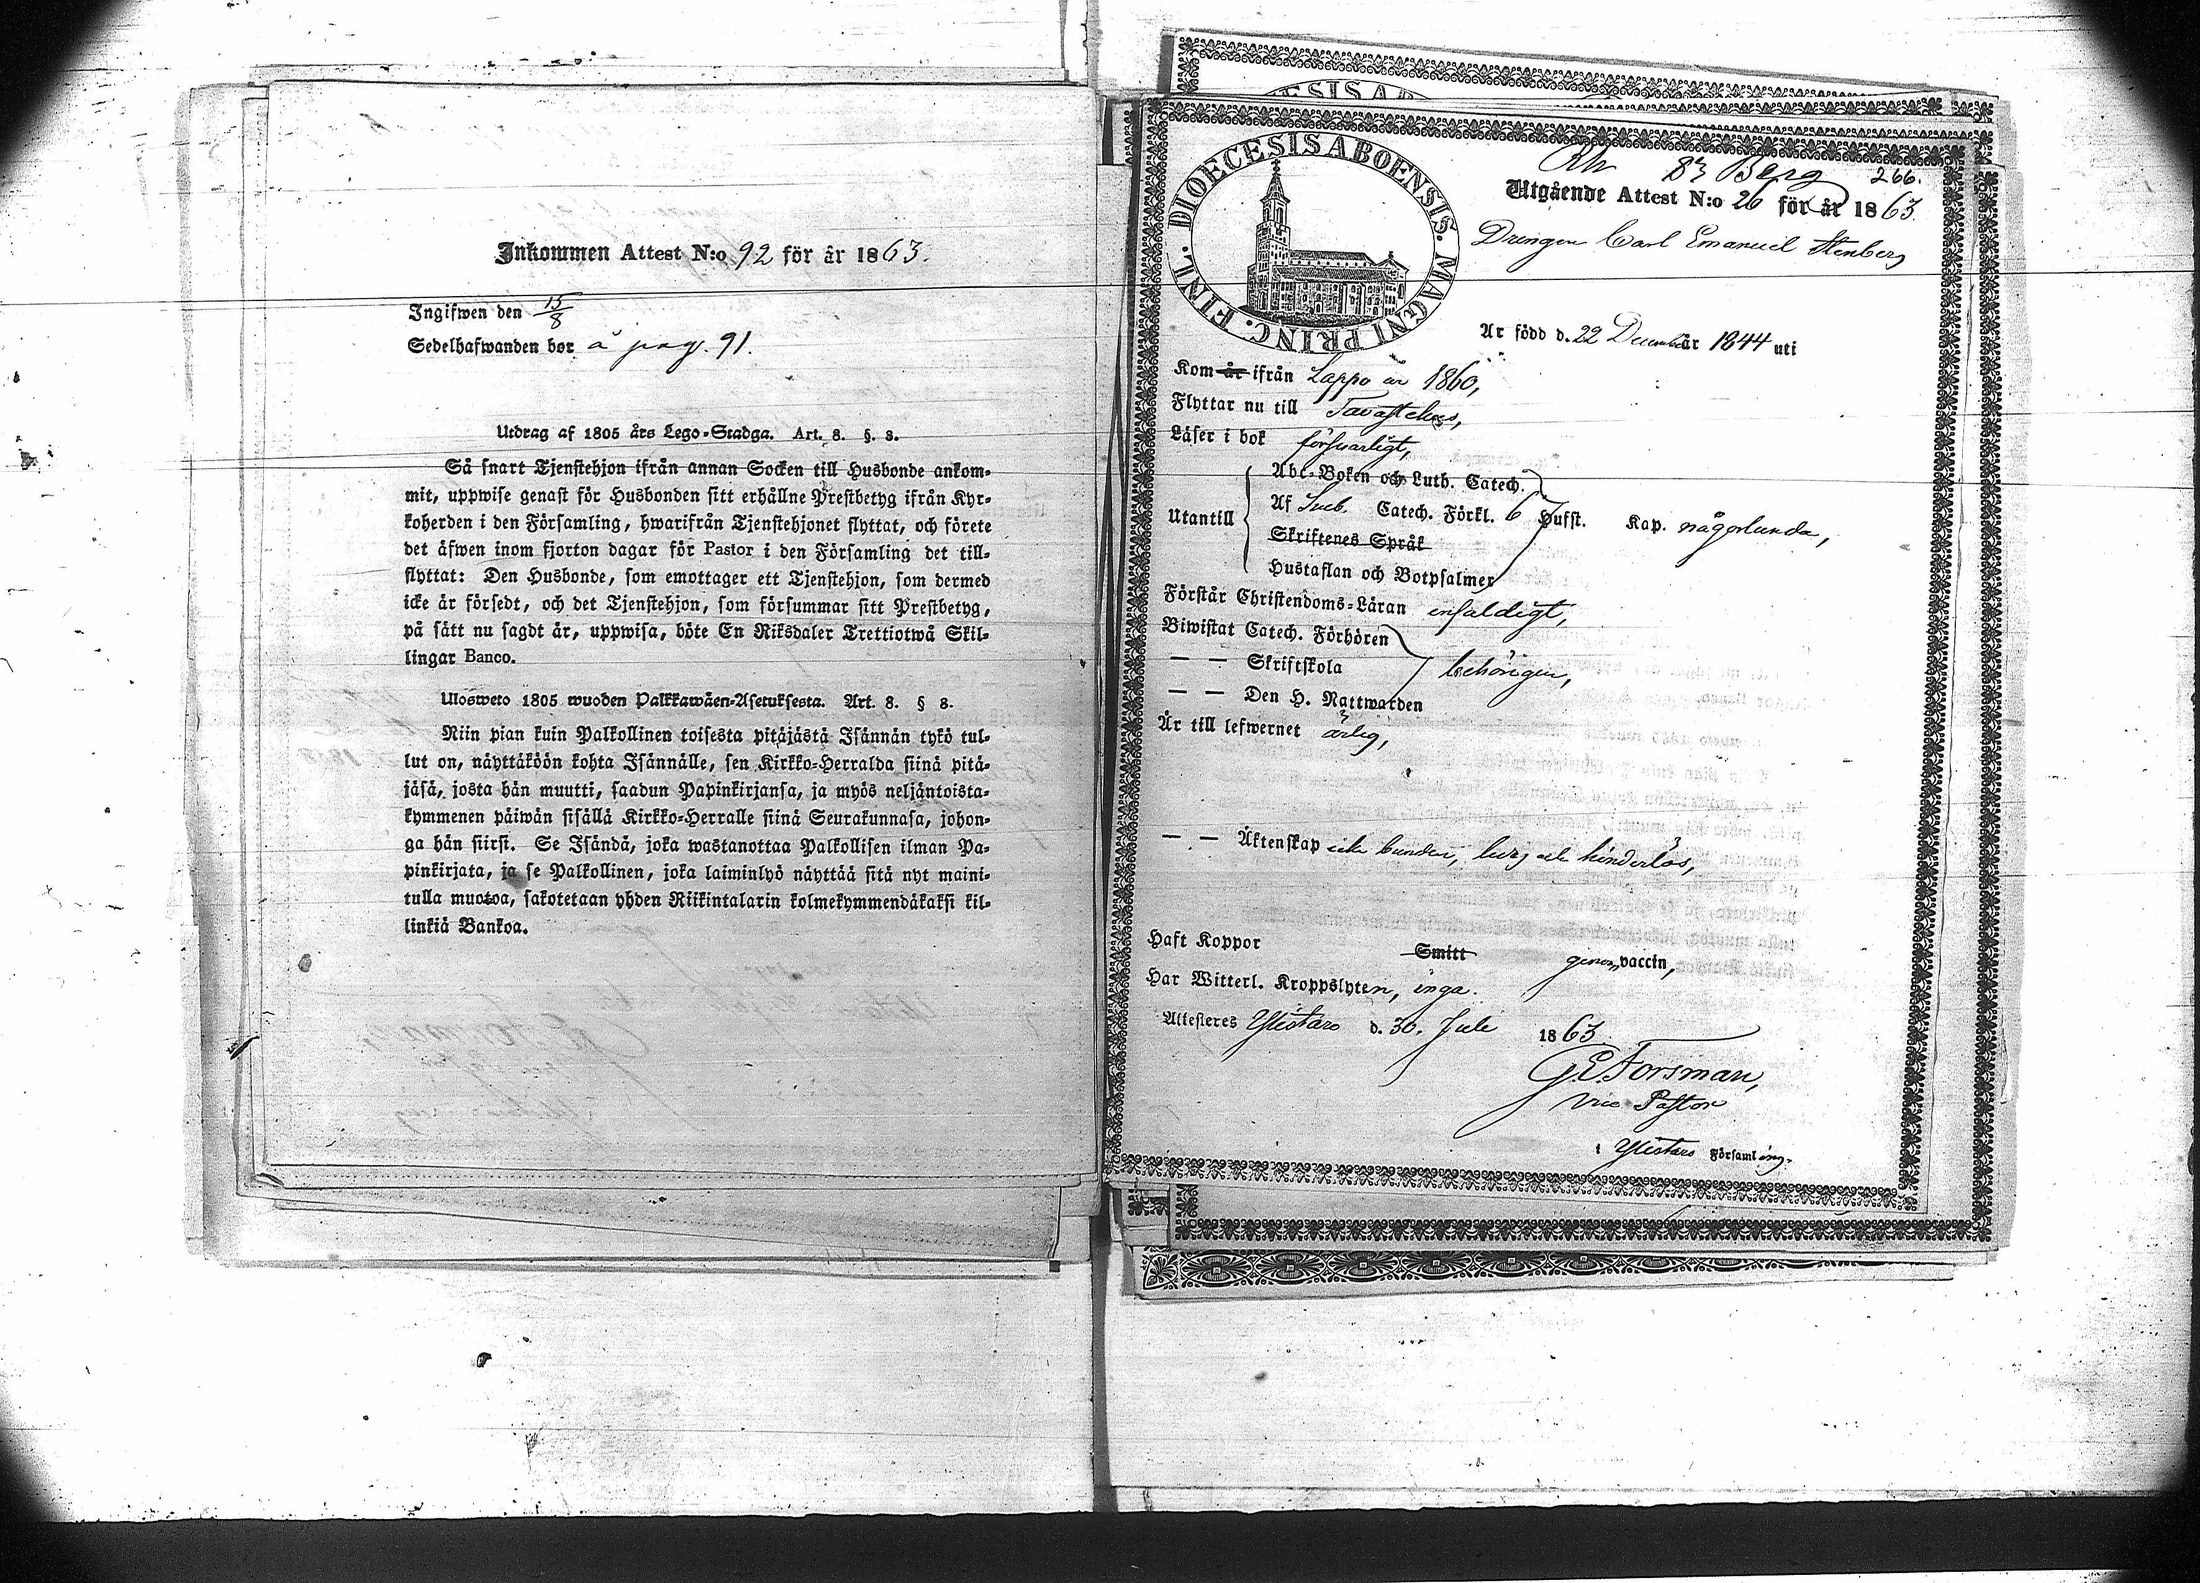 Inkommen Attest N:o 92 för år 1863.
Ingifwen den 15/8
Sedelhafwanden bor å pag. 91.
Utdrag af 1805 års Lego-Stadga. Art. 8. §. 3.
Så snart Tjenstehjon ifrån annan Socken till Husbonde ankom-
mit, uppwise genast för Husbonden sitt erhållne Prestbetyg ifrån Kyr-
koherden i den Församling, hwarifrån Tjenstehjonet flyttat, och förete
det äfwen inom fjorton dagar för Pastor i den Församling det till-
flyttat: Den Husbonde, som emottager ett Tjenstehjon, som dermed
icke är försedt, och det Tjenstehjon, som försummar sitt Prestbetyg,
på sätt nu sagdt är, uppwisa, böte En Riksdaler Trettiotwå Skil-
lingar Banco.
Ulosweto 1805 wuoden Palkkawäen-Asetuksesta. Art. 8. § 3.
Niin pian kuin Palkollinen toisesta pitäjästä Isännän tykö tul-
lut on, näyttäköön kohta Isännälle, sen Kirkko-Herralda siinä pitä-
jäsä, josta hän muutti, saadun Papinkirjansa, ja myös neljäntoista-
kymmenen päiwän sisällä Kirkko-Herralle siinä Seurakunnasa, johon-
ga hän siirsi. Se Isändä, joka wastanottaa Palkollisen ilman Pa-
pinkirjata, ja se Palkollinen, joka laiminlyö näyttää sitä nyt maini-
tulla muotoa, sakotetaan yhden Riikintalarin kolmekymmendäkaksi kil-
linkiä Bankoa.
DIOECESIS ABOENSIS. MAGNI PRINC. FINL.
83 Berg 266.
Utgående Attest N:o 26 för år 1863.
Drengen Carl Emanuel Stenberg
Är född d. 22 December 1844 uti
Kom år ifrån Lappo år 1860,
Flyttar nu till Tavastehus,
Läser i bok försvarligt,
Abc-Boken och Luth. Catech.
Utantill Af Sveb. Catech. Förkl. 6 Hufst. Kap. någorlunda,
Skriftenes Språk
Hustaflan och Botpsalmer
Förstår Christendoms-Läran enfaldigt,
Biwistat Catech. Förhören
— — Skriftskola behörigen,
— — Den H. Nattwarden
Är till lefwernet ärlig,
— — Äktenskap icke bunden, ledig och hinderlös,
Haft Koppor Smitt genom vaccin,
Har Witterl. Kroppslyten, inga.
Attesteres Ylistaro d. 30. Juli 1863
G.E. Forsman,
Vice Pastor
i Ylistaro Församling.